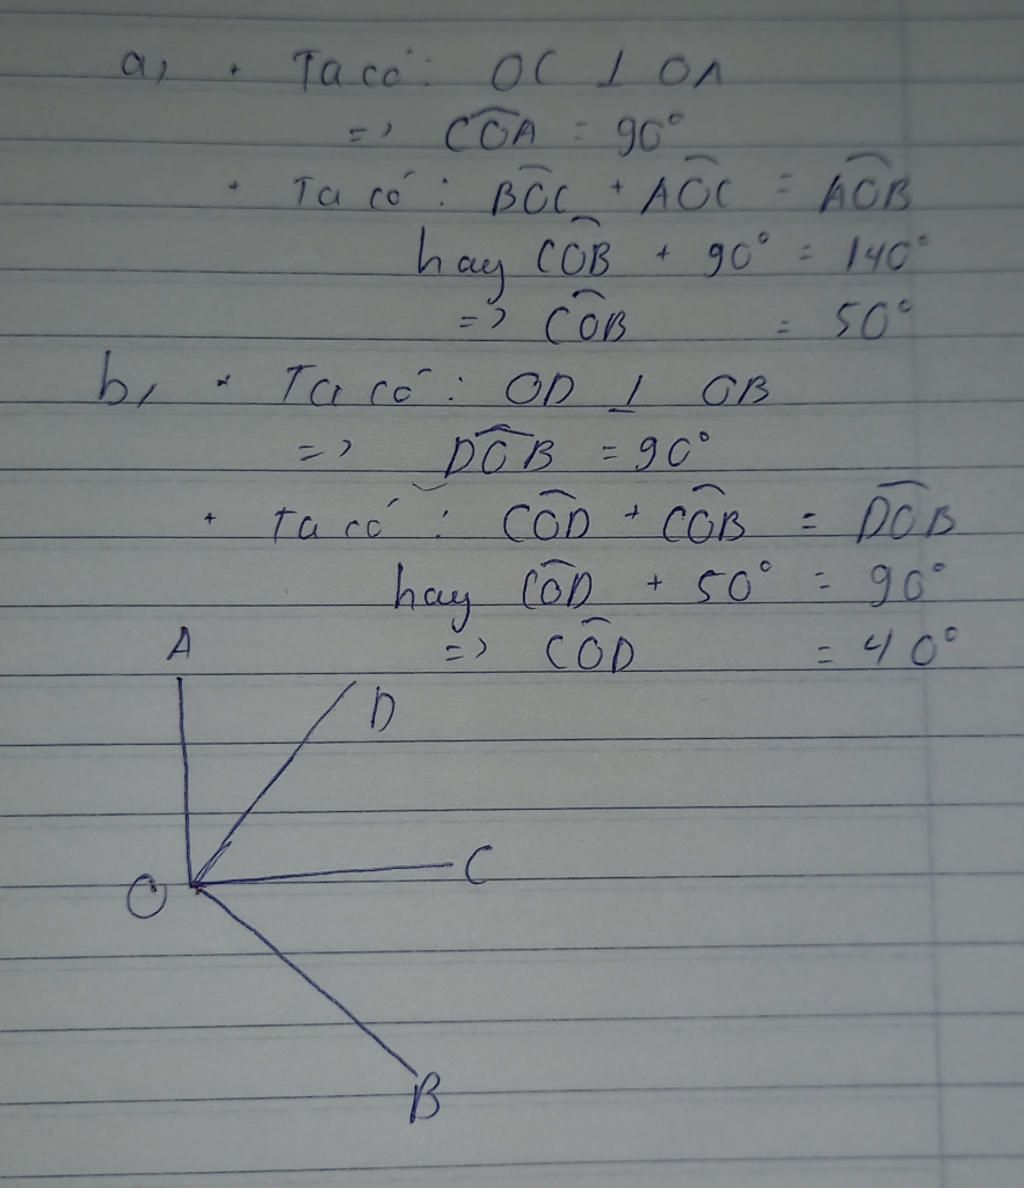 a, + Ta có: OC ⊥ OA
=> \widehat{COA} = 90°
+ Ta có: \widehat{BOC} + \widehat{AOC} = \widehat{AOB}
hay \widehat{COB} + 90° = 140°
=> \widehat{COB} = 50°
b, + Ta có: OD ⊥ OB
=> \widehat{DOB} = 90°
+ Ta có: \widehat{COD} + \widehat{COB} = \widehat{DOB}
hay \widehat{COD} + 50° = 90°
=> \widehat{COD} = 40°
A
D
C
O
B